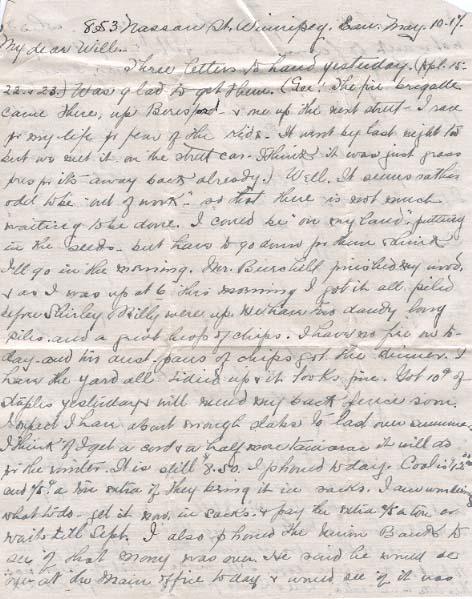 853 Nassau St. Winnipeg. Can. May. 10-17.
My dear Will..
Three letters to hand yesterday. (Apl. 15-
22. & 23.) Was glad to get them. (Gee! The fire brigade
came there, up Beresford - & one up the next street - I ran
for my life for fear of the kids. It went by last night too
but we met it on the street car. I think it was just grass
for its away back already.) Well. It seems rather
odd to be "out of work" - so that there is not much
waiting to be done. I could be "on my land" putting
in the seeds - but have to go down for them & think
I'll go in the morning. Mr. Burchell finished my wood,
& as I was up at 6 this morning I got it all piled
before Shirley & Billy were up. We have two dandy long
piles. and a great heap of chips. I have no fire on to-
day - and two dust-pans of chips got the dinner. I
have the yard all tidied up & it looks fine. Got 10¢ of
staples yesterday & will mend my back fence soon.
I expect I have about enough slabs to last over summer.
I think if I get a cord & a half more tamarac it will do
for the winter. It is still $8.50. I phoned to-day. Coal is
and a ton extra if they bring it in sacks. I am wondering
what to do - get it now, in sacks. & pay the extra a ton or
wait till Sept. I also phoned the Union Bank to
see if that money was over. He said he would be
over at the Main office to-day & would see if it was